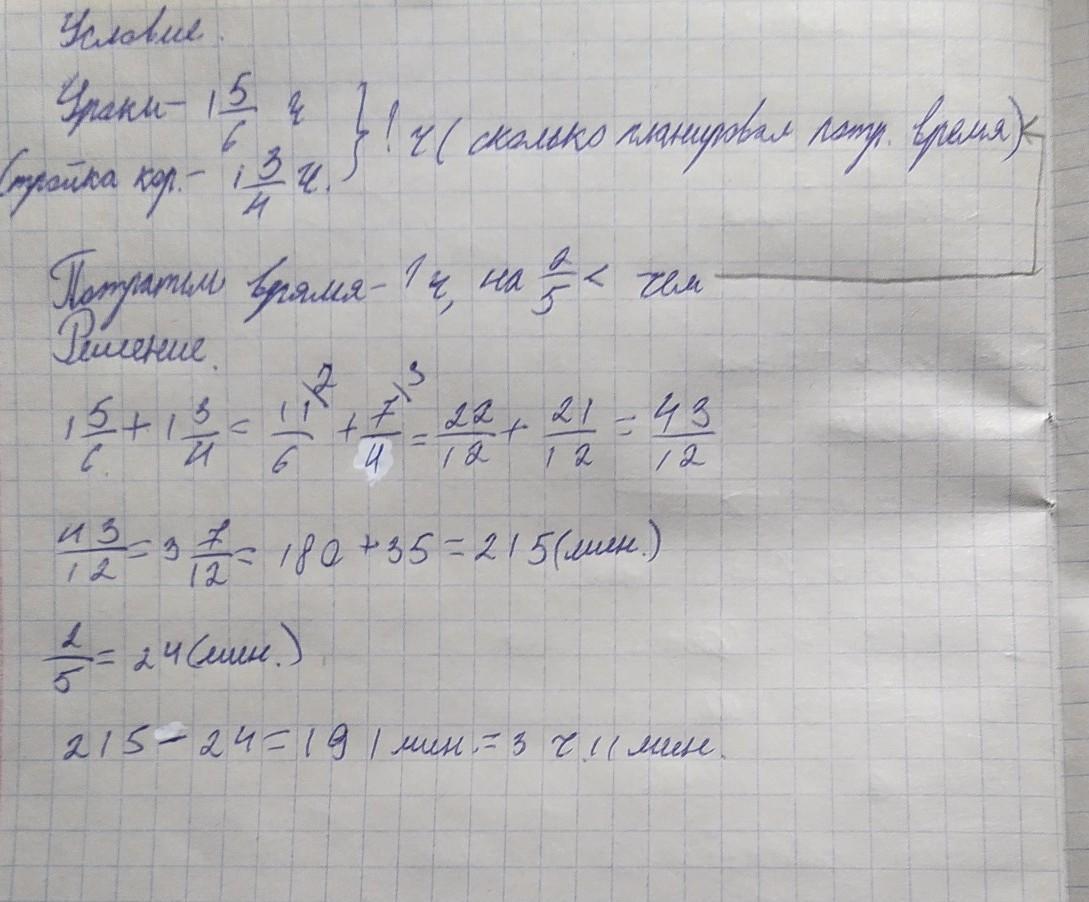 Условие.
Уроки - 1 5/6 ч
Стройка кор. - 1 3/4 ч. } ? ч (сколько планировал потр. время)
Потратил врямя - ? ч, на 2/5 < чем
Решение.
1 5/6 + 1 3/4 = 11/6 \2 + 7/4 \3 = 22/12 + 21/12 = 43/12
43/12 = 3 7/12 = 180 + 35 = 215 (мин.)
2/5 = 24 (мин.)
215 - 24 = 191 мин. = 3 ч. 11 мин.